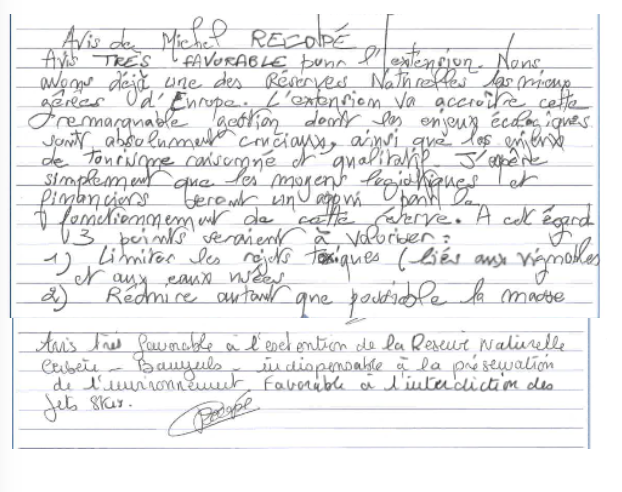 Avis de Michel RECOLPÉ
Avis TRÈS FAVORABLE pour l'extension. Nous
avons déjà une des Réserves Naturelles les mieux
gérées d'Europe. L'extension va accroître cette
remarquable gestion dont les enjeux écologiques
sont absolument cruciaux, ainsi que les enjeux
de tourisme raisonné et qualitatif. J'espère
simplement que les moyens logistiques et
financiers seront un appui pour le
fonctionnement de cette réserve. A cet égard
3 points seraient à valoriser :
1) Limiter les rejets toxiques (liés aux vignobles
et aux eaux usées
2) Réduire autant que possible la masse
Avis très favorable à l'extention de la Reserve Naturelle
Cerbère - Banyuls - indispensable à la préservation
de l'environnement. Favorable à l'interdiction des
Jets Skis.